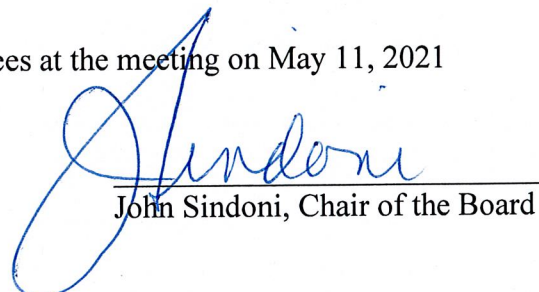 ees at the meeting on May 11, 2021
J Sindoni
John Sindoni, Chair of the Board